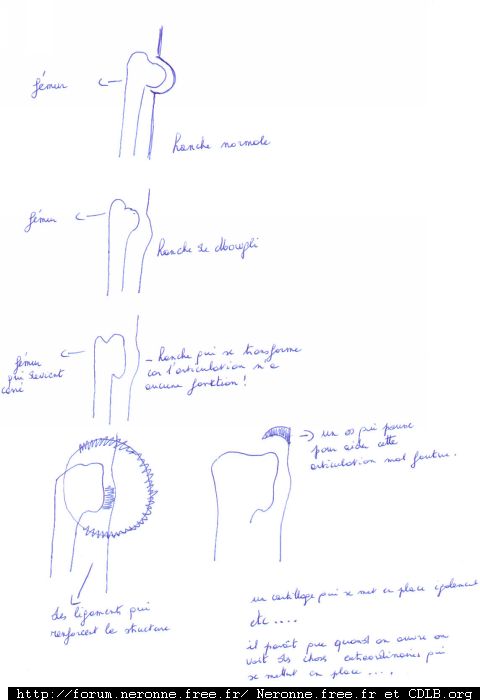 fémur
hanche normale
fémur
hanche de dboropli
fémur
qui devient
carré
- hanche qui se transforme
car l'articulation n'a
aucune fonction !
un os qui pousse
pour aider cette
articulation mal foutue.
des ligaments qui
renforcent la structure
un cartillage qui se met en place egalement
etc ....
il paraît que quand on ouvre on
voit des choses extraordinaires qui
se mettent en place ....
http://forum.neronne.free.fr/ Neronne.free.fr et CDLB.org